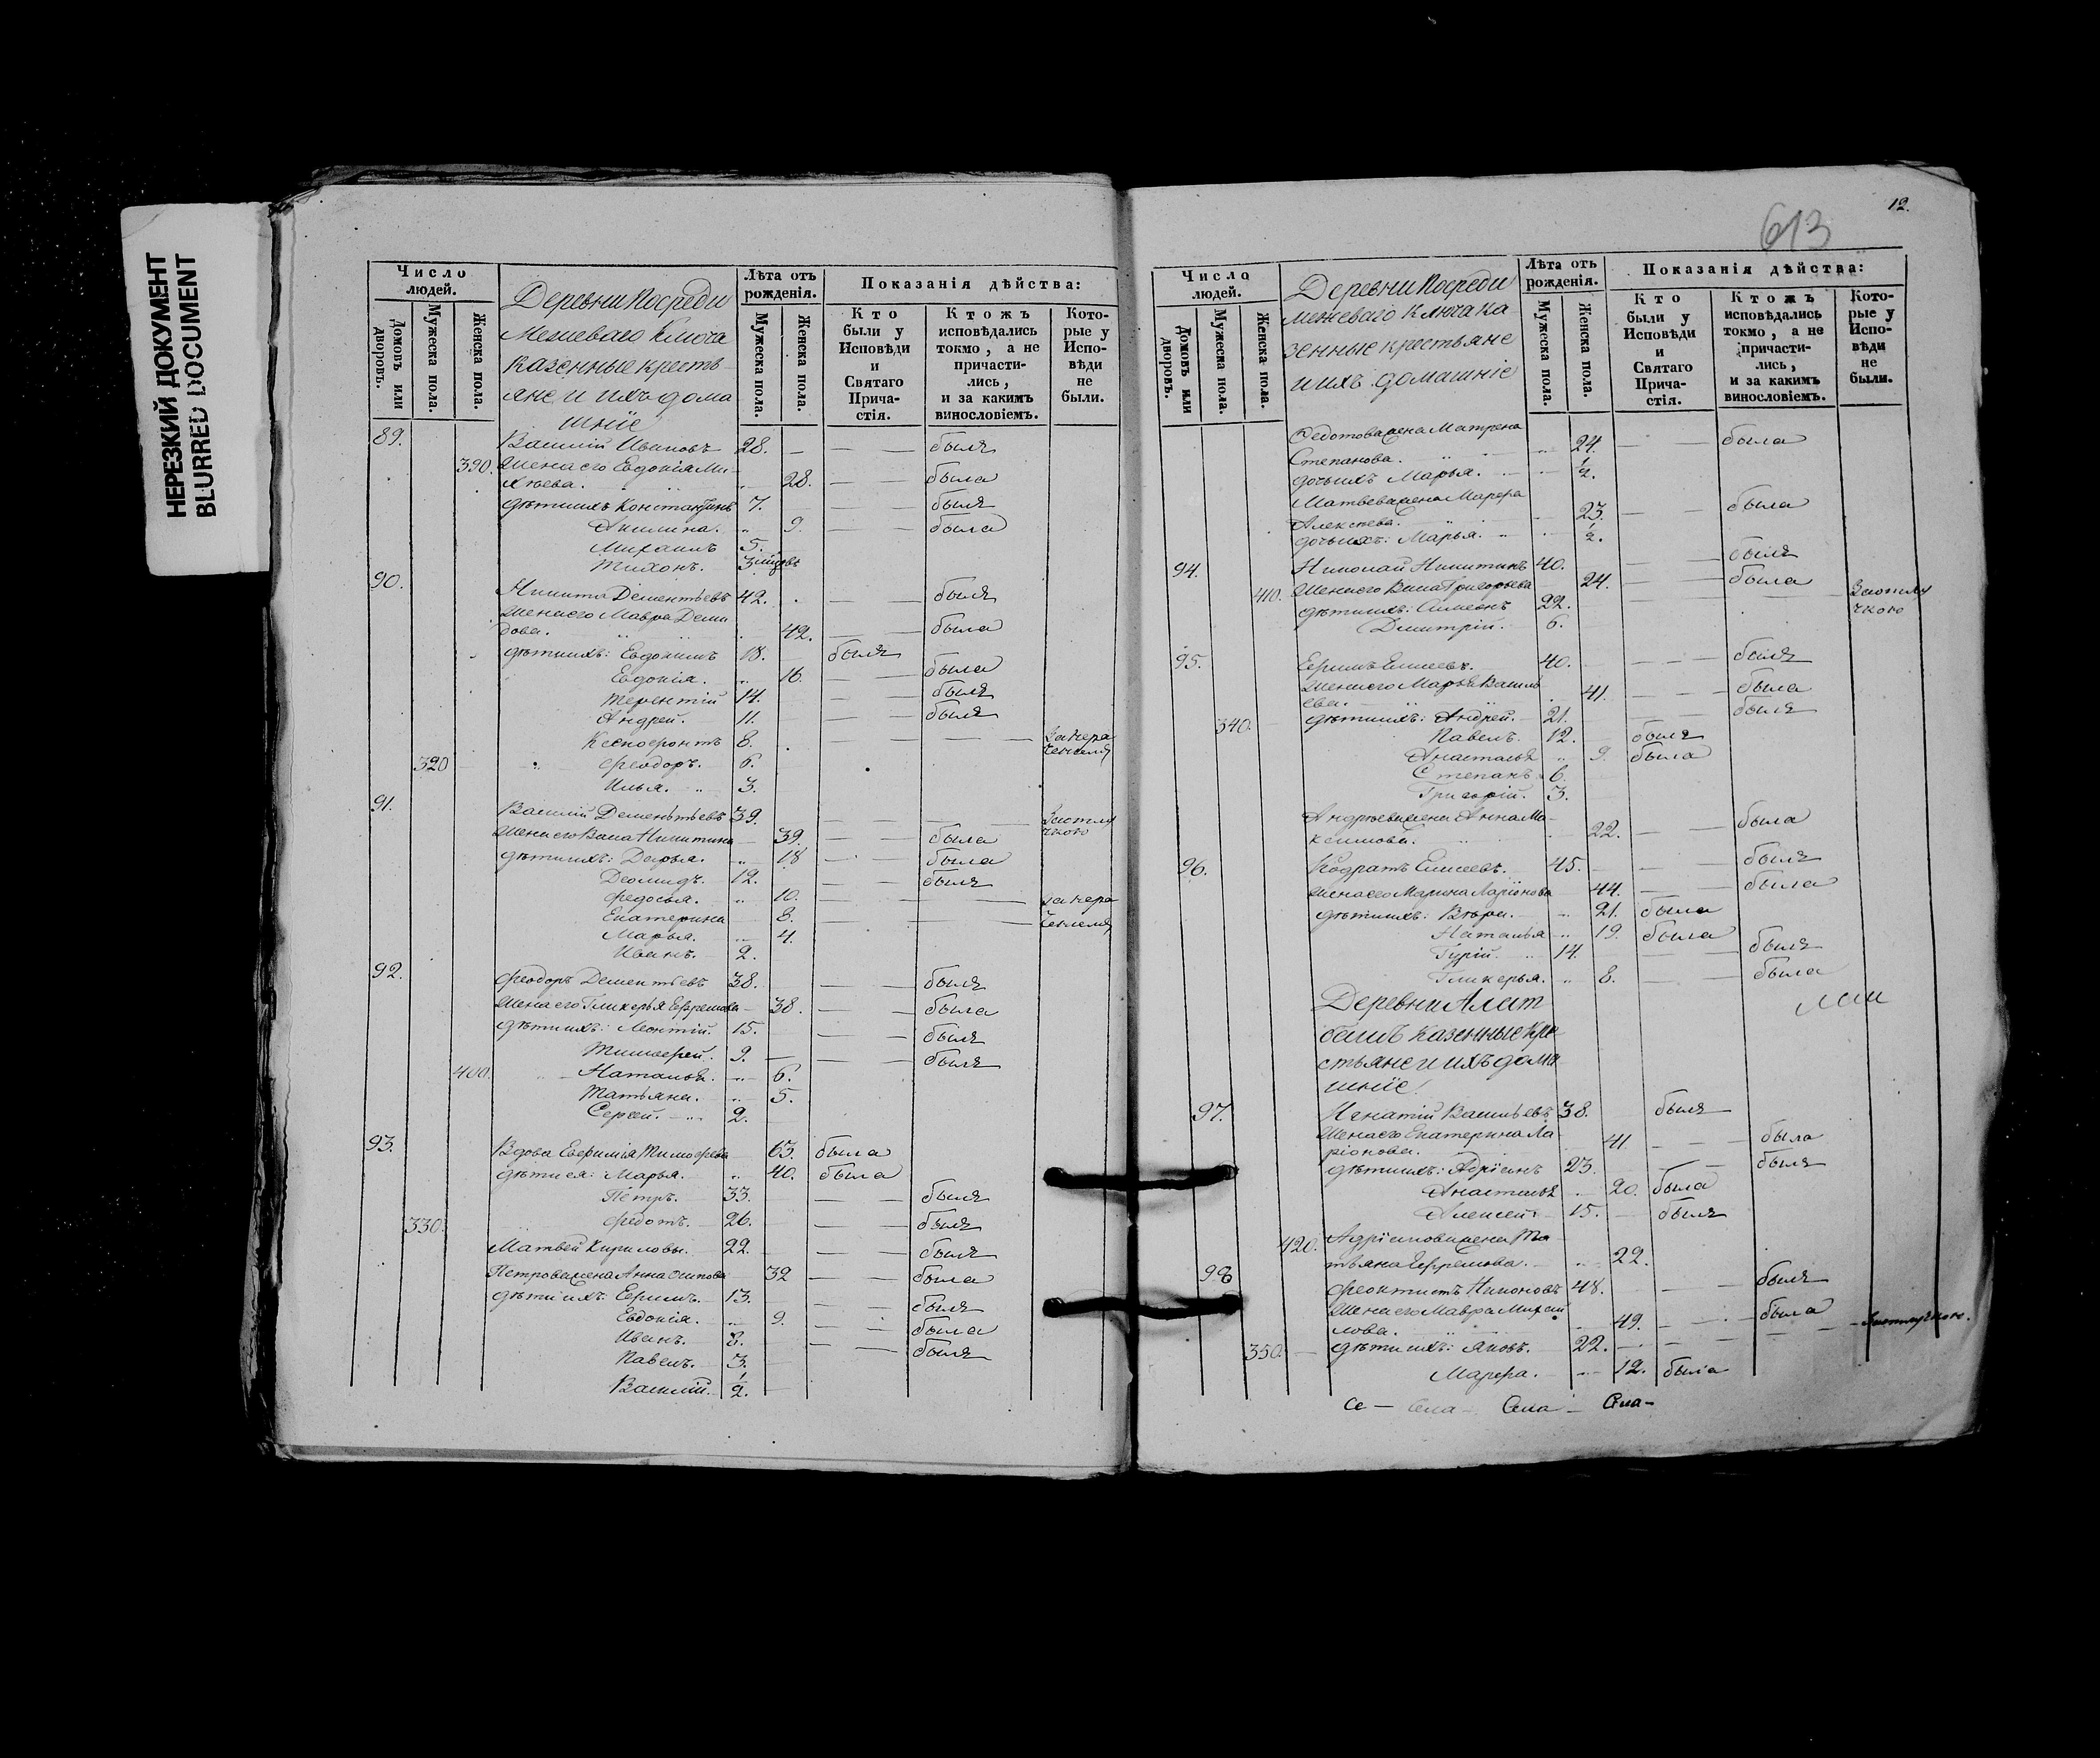 НЕРЕЗКИЙ ДОКУМЕНТ
BLURRED DOCUMENT
Число людей.
Домовъ или дворовъ.
Мужеска пола.
Женска пола.
Деревни Посреди
Межеваго Ключа
казенные кресть-
яне и ихъ дома
шніе
Лѣта отъ рожденія.
Мужеска пола.
Женска пола.
Показанія дѣйства:
Кто были у Исповѣди и Святаго Прича-стія.
Ктожъ исповѣдались токмо, а не причасти-лись, и за какимъ винословіемъ.
Кото-рые у Испо-вѣди не были.
89. Василій Ивановъ 28. — — былъ
390. Жена его Евдокія Ми-
хѣева. 28. — былъа
дѣти ихъ Константинъ 7. — былъ
Акилина. 9. — была
Михаилъ 5.
Тихонъ. 3
90. Никита Дементьевъ 42. — былъ
Жена его Мавра Деми
дова. 42. — была
дѣти ихъ: Евдокимъ 18. былъ
Евдокія. 16. — была
Терентій 14. — былъ
Андрей. 11. — былъ
Ксенофонтъ 8. — — —
320 Феодоръ. 6.
Илья. 3.
91. Василій Дементьевъ 39. — — Заотлу
чкою
Жена его Васа Никитина 39. — была
дѣти ихъ: Дарья. 18 — была
Деомидъ. 12. — былъ
Федосья. 10. — —
Екатерина 8. — —
Марья. 4.
Иванъ. 2.
92. Феодоръ Дементьевъ 38. — былъ
Жена его Гликерья Ефремова 38. — была
дѣти ихъ: Леонтій. 15. — былъ
Тимофей. 9. — былъ
400. Наталья. 6.
Татьяна. 5.
Сергей. 2.
93. Вдова Евфимія Тимофеева 63. была
дѣти ея: Марья. 40. была
Петръ. 33. — былъ
330. Федотъ. 26. — былъ
Матвей Кириловы. 22. — былъ
Петрова жена Анна Осипова 32 — была
дѣти ихъ: Ефимъ. 13. — былъ
Евдокія. 9. — была
Иванъ. 8. — былъ
Павелъ. 3.
Василій. 1/2.
12.
613
Число людей.
Домовъ или дворовъ.
Мужеска пола.
Женска пола.
Деревни Посреди
межеваго Ключа ка-
зенные крестьяне
и ихъ домашніе
Лѣта отъ рожденія.
Мужеска пола.
Женска пола.
Показанія дѣйства:
Кто были у Исповѣди и Святаго Прича-стія.
Ктожъ исповѣдались токмо, а не причасти-лись, и за какимъ винословіемъ.
Кото-рые у Испо-вѣди не были.
Федотова жена Матрена
Степанова. 24. — была
дочь ихъ Марья. 1/2.
Матвева жена Марфа
Алексеева. 23. — была
дочь ихъ: Марья. 1/2.
94. Николай Никитинъ 40. — былъ
410. Жена его Васа Григорьева 24. — была
дѣти ихъ: Симеонъ 22. — — Заотлу
чкою
Димитрій. 6.
95. Ефимъ Елисеевъ. 40. — былъ
Жена его Марья Василь
ева. 41. — была
340. дѣти ихъ: Андрей. 21. — былъ
Павелъ. 12. былъ
Анастасья 9. была
Степанъ 6.
Григорій. 3.
Андреева жена Анна Ма-
ксимова. 22. — была
96. Кодратъ Елисеевъ. 45. — былъ
Жена его Марина Ларіонова 44. — была
дѣти ихъ: 21. была
Наталья 19. была
Гурій. 14. — былъ
Гликерья. 8. — была
Деревни Алат
башъ казенные кре-
стьяне и ихъ дома
шніе
97. Игнатій Васильевъ 38. былъ
Жена его Екатерина Ла-
ріонова. 41 — была
дѣти ихъ: Адріянъ 23. — былъ
Анастасья 20. была
Алексей. 15. былъ
420. Адріянова жена Та-
тьяна Ефремова. 22.
98 Феоктистъ Никоновъ 48. — былъ
Жена его Мавра Михай
лова. 49. — была
350. дѣти ихъ: Яковъ. 22. — — Заотлучкою.
Марфа. 12. была